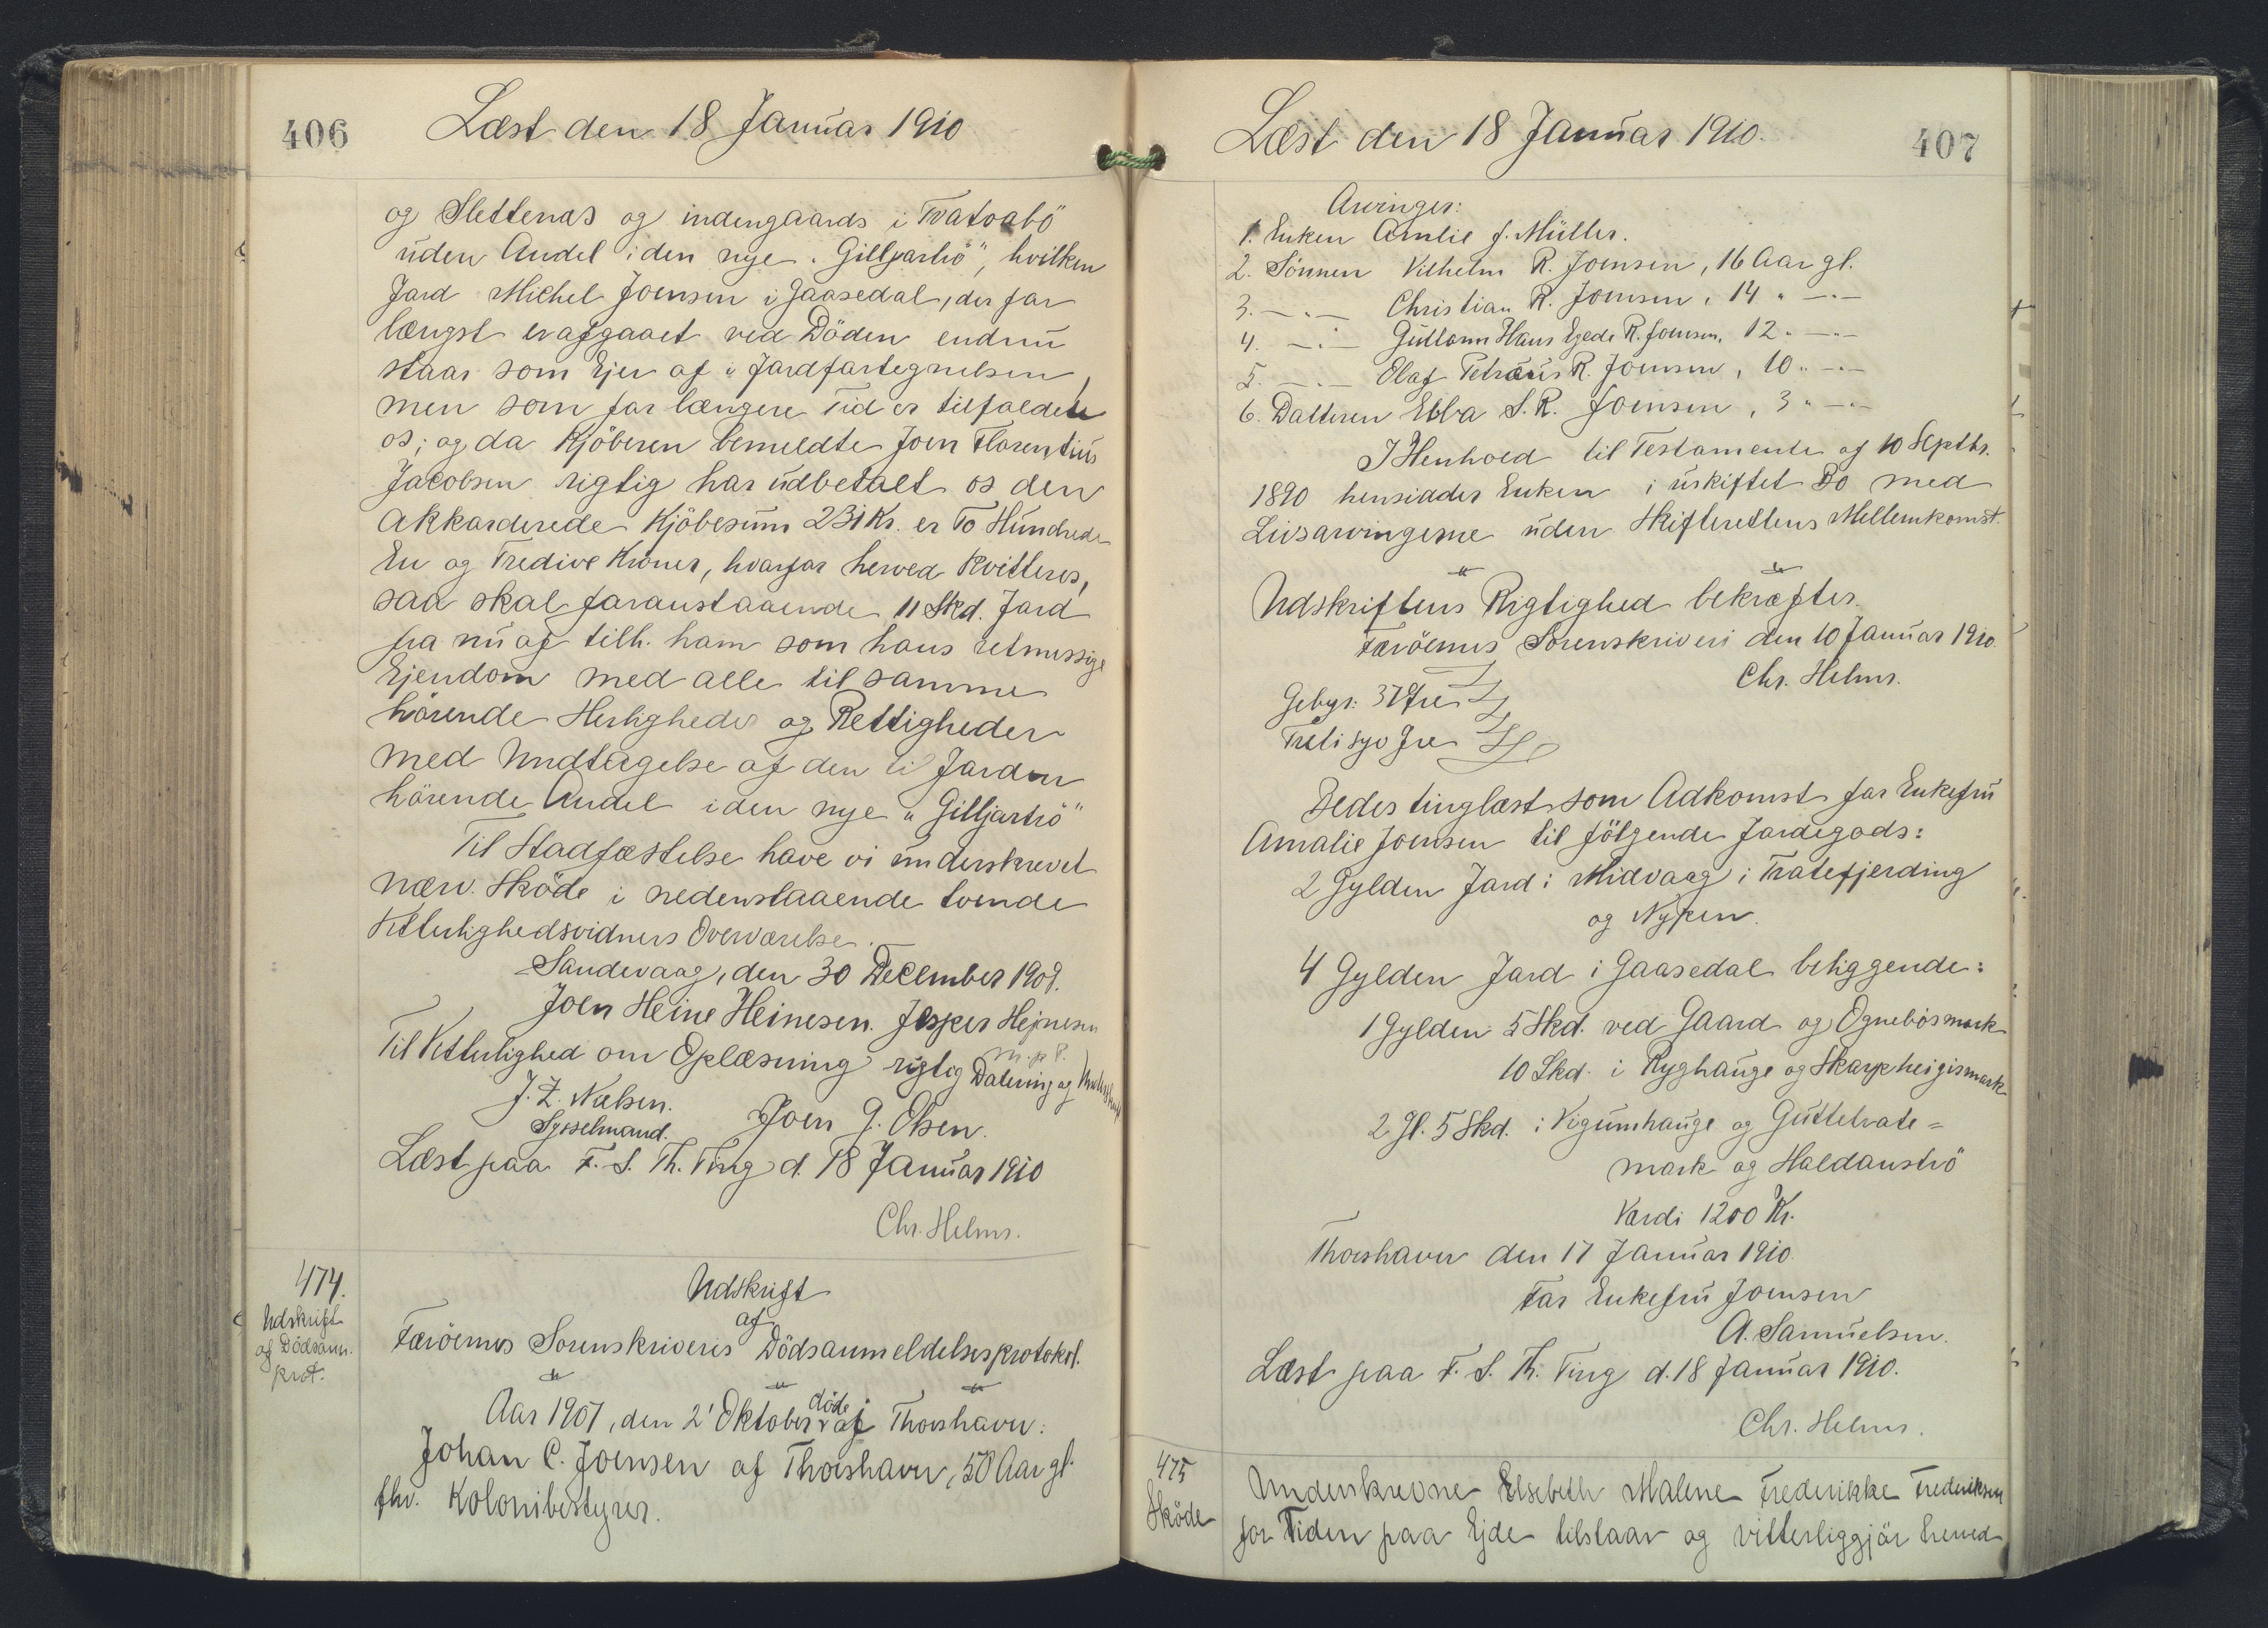 406
Læst den 18 Januar 1910
og Slettenas og indengaards i Tvatoabö
uden Andel i den nye "Gilljartrö", hvilken
Jord Michel Joensen i Gaasedal, der for
længst er afgaaet ved Döden endnu
staar som Ejer af i Jordfortegnelsen,
men som for længere Tid er tilfaldet
os; og da Kjöberen bemeldte Joen Florentius
Jacobsen rigtig har udbetalt os den
akkorderede Kjöbesum 231 Kr. er To Hundrede
En og Tredive Kroner, hvorfor herved kvitteres,
saa skal foranstaaende 11 Skd. Jord
fra nu af tilh. ham som hans retmæssige
Ejendom med alle til samme
hörende Herligheder og Rettigheder
med Undtagelse af den til Jorden
hörende Andel i den nye "Gilljartrö"
Til Stadfæstelse have vi underskrevet
nærv. Sköde i nedenstaaende tvende
Vitterlighedsvidners Overværelse.
Sandevaag, den 30 December 1909.
Joen Heine Heinesen. Jesper Hejnesen
m. p. P.
Til Vitterlighed om Oplæsning rigtig Datering og
J. Z. Nielsen. Joen J. Olsen.
Sysselmand.
Læst paa F. S. Th. Ting d. 18 Januar 1910
Chr. Helms.
474.
Udskrift
af Dödsanm.
prot.
Udskrift
af
Færöernes Sorenskriveris Dödsanmeldelsesprotokol.
Aar 1907, den 2' Oktober döde af Thorshavn:
Johan C. Joensen af Thorshavn, 50 Aar gl.
fhv. Kolonibestyrer.
Læst den 18 Januar 1910.
407
Arvinger:
1. Enken Amlie f. Müller.
2. Sönnen Vilhelm R. Joensen, 16 Aar gl.
3. —"— Christian R. Joensen, 14 " —"—
4. —"— Gullonn Hans Egede R. Joensen, 12 " —"—
5. —"— Olaf Petræus R. Joensen, 10 " —"—
6. Datteren Ebba S. R. Joensen, 3 " —"—
I Henhold til Testamente af 10 Septbr.
1890 hensidder Enken i uskiftet Bo med
Livsarvingerne uden Skifterettens Mellemkomst.
Udskriftens Rigtighed bekræftes.
Færöernes Sorenskriveri den 10 Januar 1910.
Chr. Helms.
Gebyr: 37 Öre
Treti syv Öre
Bedes tinglæst som Adkomst for Enkefru
Amalie Joensen til fölgende Jordegods:
2 Gylden Jord i Midvaag i Tratefjerding
og Nypen.
4 Gylden Jord i Gaasedal beliggende:
1 Gylden 5 Skd. ved Gaard og Ognebösmark
10 Skd. i Ryghauge og Skarpheigismark
2 Gl. 5 Skd. i Vigumhauge og Guttelvate=
mark og Haldanströ
Værdi 1200 Kr.
Thorshavn den 17 Januar 1910.
For Enkefru Joensen
A. Samuelsen.
Læst paa F. S. Th. Ting d. 18 Januar 1910.
Chr. Helms.
475
Sköde
Underskrevne Elsebeth Malene Frederikke Frederiksen
for Tiden paa Ejde tilstaar og vitterliggjör herved